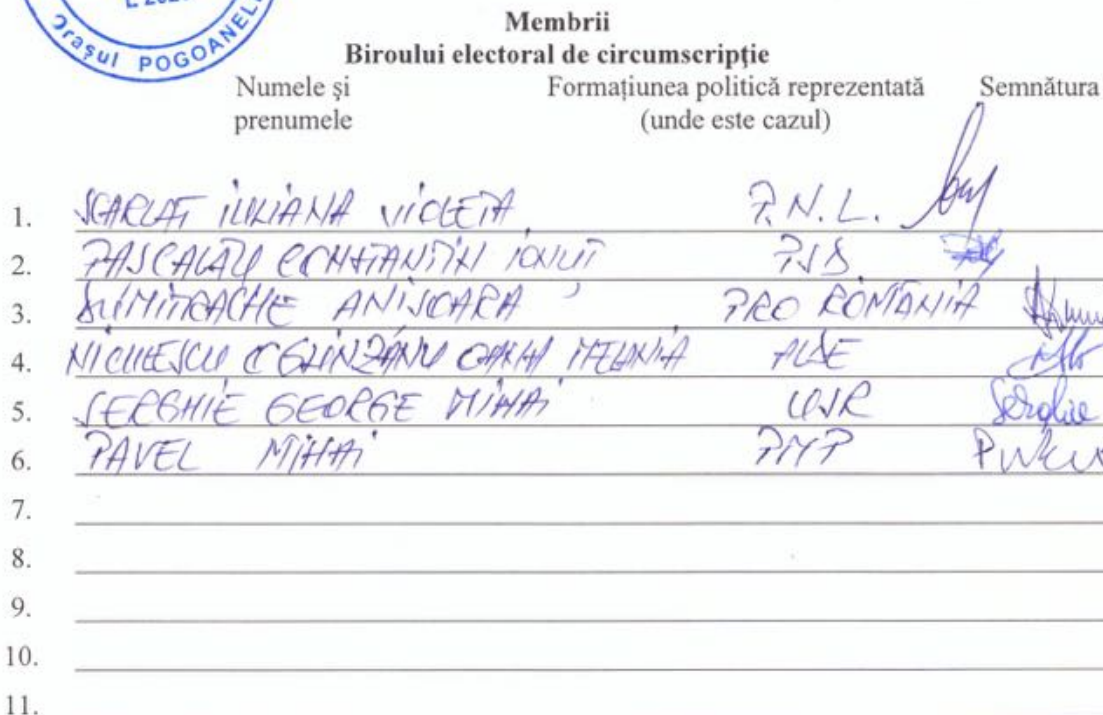 Orașul POGOANELE
Membrii
Biroului electoral de circumscripţie
Numele şi prenumele
Formațiunea politică reprezentată (unde este cazul)
Semnătura
1. SCARLAT IULIANA VIOLETA P.N.L.
2. PASCALAU CONSTANTIN IONUT PSD
3. DUMITRACHE ANISOARA PRO ROMANIA
4. NICULESCU MELANIA ALDE
5. SERGHIE GEORGE MIHAI USR Serghie
6. PAVEL MIHAI PMP
7.
8.
9.
10.
11.